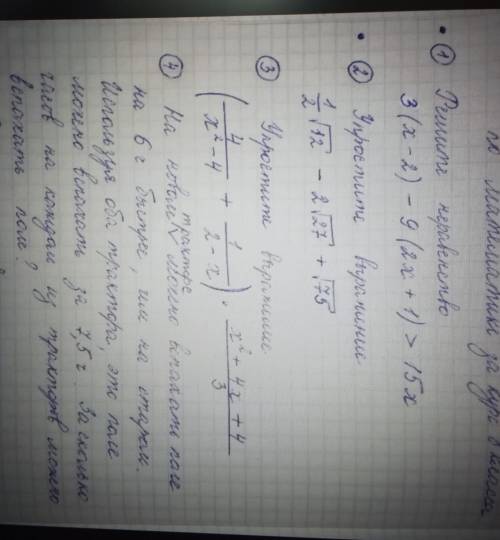 по математике за курс 8 класса
• ① Решите неравенство
3(x-2) - 9(2x+1) > 15x
• ② Упростите выражение
1/2 √12 - 2√27 + √75
③ Упростите выражение
(4/(x²-4) + 1/(2-x)) · (x²+4x+4)/3
④ На новом тракторе можно вспахать поле
на 6 ч быстрее, чем на старом.
Используя оба трактора, это поле
можно вспахать за 7,5 ч. За сколько
часов на каждом из тракторов можно
вспахать поле?